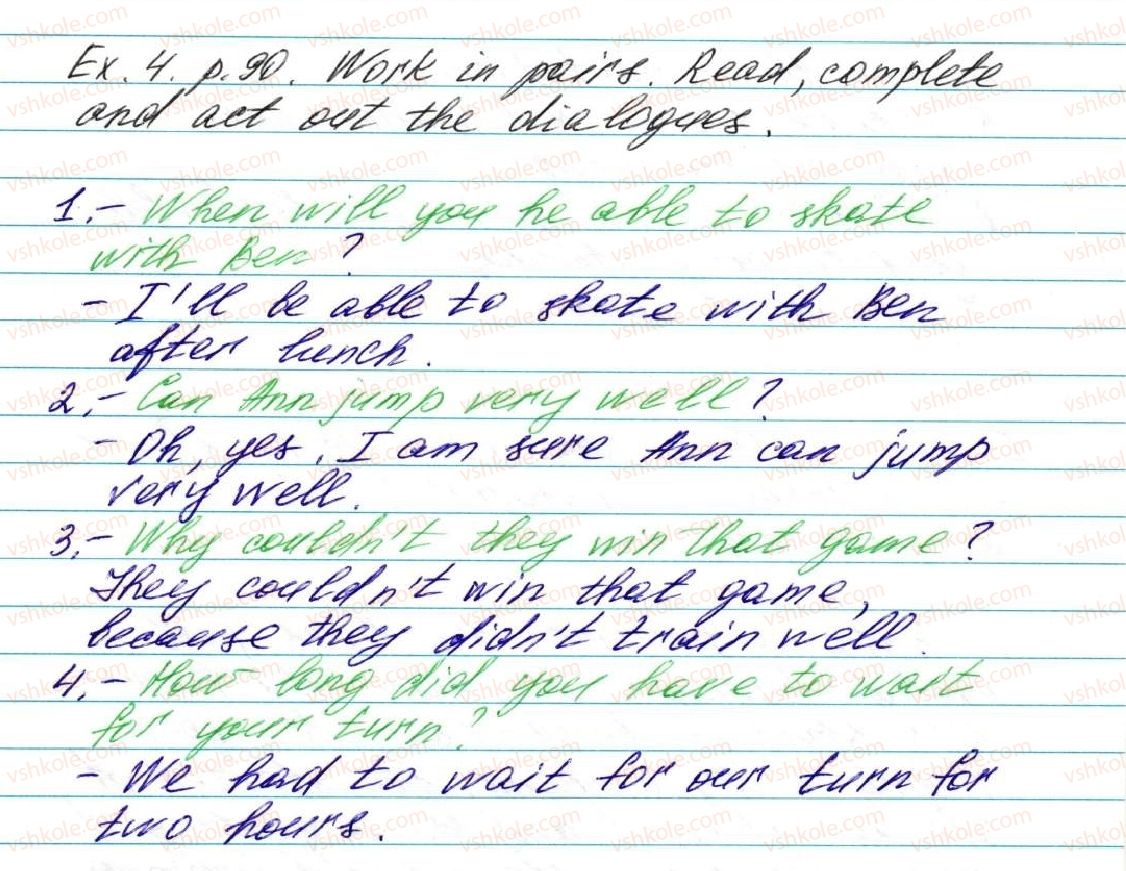 Ex. 4. p. 90. Work in pairs. Read, complete
and act out the dialogues.
1.- When will you be able to skate
with Ben?
- I'll be able to skate with Ben
after lunch.
2.- Can Ann jump very well?
- Oh, yes, I am sure Ann can jump
very well.
3.- Why couldn't they win that game?
They couldn't win that game,
because they didn't train well.
4.- How long did you have to wait
for your turn?
- We had to wait for our turn for
two hours.